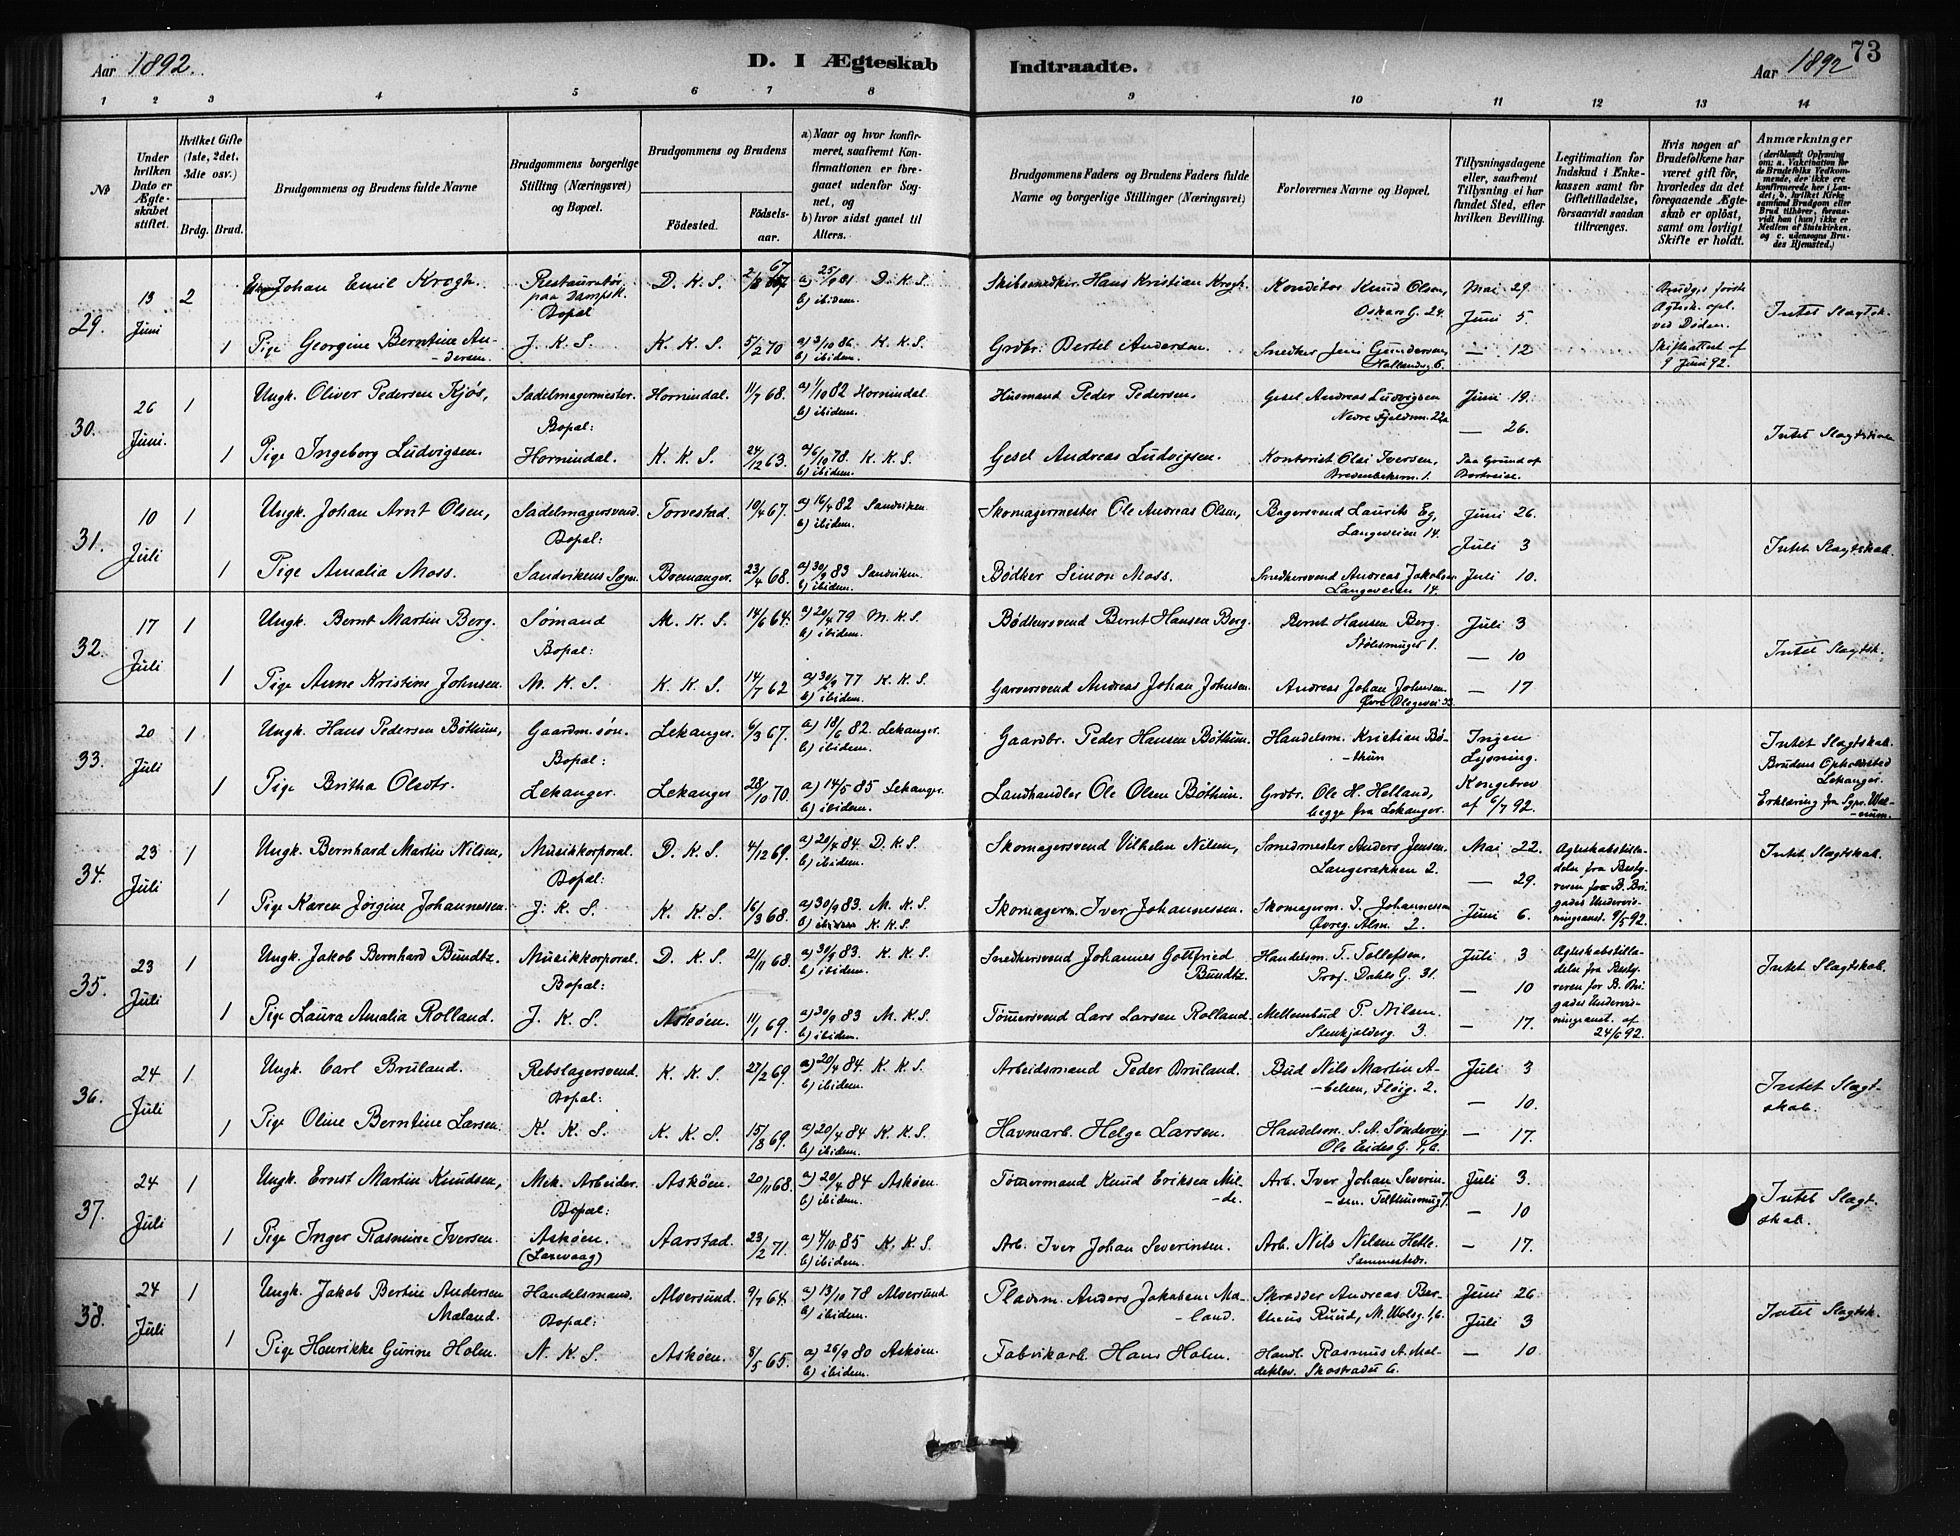 Aar 1892.
D. I Ægteskab Indtraadte.
Aar 1892
73
1 2 3 4 5 6 7 8 9 10 11 12 13 14
No
Under hvilken Dato er Ægteskabet stiftet.
Hvilket Gifte (1ste, 2det, 3die osv.)
Brdg. Brud.
Brudgommens og Brudens fulde Navne
Brudgommens borgerlige Stilling (Næringsvei) og Bopæl.
Brudgommens og Brudens
Födested.
Födselsaar.
a) Naar og hvor konfirmeret, saafremt Konfirmationen er foregaaet udenfor Sognet, og
b) hvor sidst gaaet til Alters.
Brudgommens Faders og Brudens Faders fulde Navne og borgerlige Stillinger (Næringsvei)
Forlovernes Navne og Bopæl.
Tillysningsdagene eller, saafremt Tillysning ei har fundet Sted, efter hvilken Bevilling.
Legitimation for Indskud i Enkekassen samt for Giftetilladelse, forsaavidt saadan tiltrænges.
Hvis nogen af Brudefolkene har været gift för, hvorledes da det foregaaende Ægteskab er oplöst, samt om lovligt Skifte er holdt.
Anmærkninger
(deriblandt Oplysning om: a. Vakcination for de Brudefolks Vedkommende, der ikke ere konfirmerede her i Landet, b. hvilket Kirkesamfund Brudgom eller Brud tilhörer, forsaavidt han (hun) ikke er Medlem af Statskirken, og c. udensogns Brudes Hjemsted.)
29. 13 Juni 2 Johan Emil Krogh. Restauratør paa Dampsk. Bopæl D. K. S. 2/8 67 a) 25/9 81 D. K. S. b) ibidem. Skibssmedkr. Hans Kristian Krogh. Konditor Knud Olsen, Oskars G. 24. Mai 29 Juni 5. Brudgs første Ægtesk. opl. ved Døden. Skifteattest af 9 Juni 92. Intet Slægtsk.
1 Pige Georgine Berntine Andersen J. K. S. K. K. S. 5/2 70 a) 3/10 86 K. K. S. b) ibidem. Grdbr. Bertel Andersen. Snedker Jens Gundersen, — 12
30. 26 Juni. 1 Ungk. Oliver Pedersen Kjøs, Sadelmagermester. Bopæl: Hornindal. 11/7 68. a) 1/10 82 Hornindal. b) ibidem. Husmand Peder Pedersen. Gesel Andreas Ludvigsen Nedre Fjeldsm. 22a Juni 19. — 26. Intet Slægtskab
1 Pige Ingeborg Ludvigsen. Hornindal. K. K. S. 24/12 63. a) 6/10 78. K. K. S. b) ibidem. Gesel Andreas Ludvigsen. Kontorist Olai Iversen, Paa Grund af Bortreise.
31. 10 Juli 1 Ungk. Johan Arnt Olsen, Sadelmagersvend. Bopæl: Torvestad. 10/4 67. a) 16/4 82 Sandviken b) ibidem. Skomagermester Ole Andreas Olsen, Bagersvend Laurits Eg, Langeveien 14. Juni 26. Juli 3 Intet Slægtskab.
1 Pige Amalia Moss. Sandvikens Sogn. Bremanger. 23/4 68. a) 30/9 83 Sandviken. b) ibidem. Bødker Simon Moss. Snedkersvend Andreas Jakobsen Langeveien 14. Juli 10.
32. 17 Juli 1 Ungk. Bernt Martin Berg. Sømand Bopæl: M. K. S. 14/6 64. a) 20/4 79 M. K. S. b) ibidem. Bødkersvend Bernt Hansen Berg. Bernt Hansen Berg. Stølesmuget 1. Juli 3 — 10 Intet Slægtsk.
1 Pige Anne Kristine Johnsen. M. K. S. K. K. S. 14/7 62 a) 30/9 77 K. K. S. b) ibidem. Garversvend Andreas Johan Johnsen. Andreas Johan Johnsen. Øvre Blegevei 33. — 17
33. 20 Juli 1 Ungk. Hans Pedersen Bøthun, Gaardm.søn. Bopæl: Lekanger. 6/3 67. a) 18/6 82. Lekanger. b) ibidem. Gaardbr. Peder Hansen Bøthun. Handelsm. Kristian Bøthun Ingen Lysning. Intet Slægtskab. Brudens Opholdssted Lekanger.
1 Pige Britha Olsdtr. Lekanger. Lekanger 28/10 70. a) 14/5 85 Lekanger. b) ibidem. Landhandler Ole Olsen Bøthun. Grdbr. Ole H. Helland, begge fra Lekanger. Kongebrev af 6/7 92. Erklæring fra Sgpr.
34. 23 Juli 1 Ungk. Bernhard Martin Nilsen, Musikkorporal. Bopæl: D. K. S. 4/12 69. a) 20/4 84 D. K. S. b) ibidem. Skomagersvend Vilhelm Nilsen, Smedmester Anders Jensen. Langerækken 2. Mai 22. — 29. Ægteskabstilladelse fra Bestyreren for B. Brigades Undervisningsanst. 9/5 92. Intet Slægtskab.
1 Pige Karen Jørgine Johannessen. J. K. S. K. K. S. 16/3 68. a) 30/9 83. M. K. S. b) ibidem K. K. S. Skomagerm. Iver Johannessen. Skomagerm. I. Johannessen Øvreg. Alm. 2. Juni 6.
35. 23 Juli 1 Ungk. Jakob Bernhard Bundtz. Musikkorporal. Bopæl: D. K. S. 21/11 68. a) 30/9 83. K. K. S. b) ibidem. Snedkersvend Johannes Gottfried Bundtz. Handelsm. T. Tollefsen, Prof. Dahls G. 31. Juli 3 — 10 Ægteskabstilladelse fra Bestyreren for B. Brigades Undervisningsanst. af 24/6 92. Intet Slægtskab.
1 Pige Laura Amalia Rolland. J. K. S. Askøen. 11/1 69. a) 30/9 83 M. K. S. b) ibidem. Tømersvend Lars Larsen Rolland. Mellembud P. Nilsen. Stenkjelderg. 3. — 17.
36. 24 Juli 1 Ungk. Carl Bruland. Rebslagersvend. Bopæl: K. K. S. 27/2 69. a) 20/4 84. K. K. S. b) ibidem. Arbeidsmand Peder Bruland. Bud Nils Martin Abelsen, Fløig. 2. Juli 3 — 10. Intet Slægtskab.
1 Pige Oline Berntine Larsen. K. K. S. K. K. S. 15/8 69. a) 20/4 84 K. K. S. b) ibidem. Havnarb. Helge Larsen. Handelsm. S. A. Søndervig — 17.
37. 24 Juli 1 Ungk. Ernst Martin Knudsen, Mek. Arbeider. Bopæl: Askøen. 20/11 68. a) 20/4 84 Askøen. b) ibidem. Tømermand Knud Eriksen Milde. Arb. Iver Johan Severinsen. Tolthusmug 7. Juli 3. — 10 Intet Slægtskab.
1 Pige Inger Rasmine Iversen. Askøen. (Laxevaag) Aarstad. 23/2 71. a) 4/10 85 K. K. S. b) ibidem. Arb. Iver Johan Severinsen. Arb. Nils Nilsen Hetle. Sammesteds. — 17.
38. 24 Juli 1 Ungk. Jakob Bertin Andersen Mæland. Handelsmand. Bopæl: Alversund. 9/7 64. a) 13/10 78 Alversund. b) ibidem. Pladsm. Anders Jakobsen Mæland. Skrædder Andreas Ruud, Juni 26 Juli 3 Intet Slægtsk.
1 Pige Henrikke Gurine Holm. N. K. S. Askøen. 8/5 65. a) 26/9 80 Askøen. b) ibidem. Fabrikarb. Hans Holm. Handl. Rasmus A. — 10